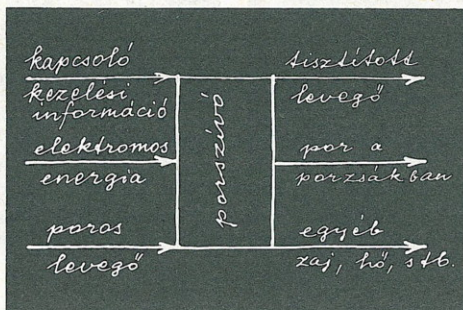 kapcsoló
kezelési
információ
elektromos
energia
poros
levegő
porszívó
tisztított
levegő
por a
porzsákban
egyéb
zaj, hő, stb.